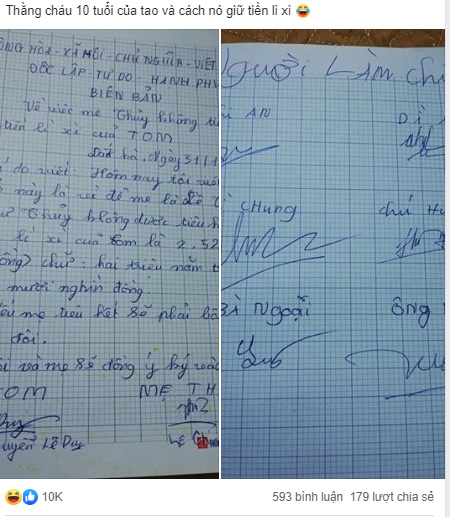 Thằng cháu 10 tuổi của tao và cách nó giữ tiền lì xì 😂
ÔNG HÒA - XÃ HỘI - CHỦ NGHĨA - VIỆT
ĐỘC LẬP - TỰ DO - HẠNH PHÚ
BIÊN BẢN
Về việc mẹ Thủy không
tiền lì xì của TOM
ngày 31.1.1
do viết: Hôm nay tôi
này là vì để mẹ là
Thủy không được tiêu
lì xì của tom là 2,52
đồng) chữ: hai triệu năm t
mươi nghìn đồng.
mẹ tiêu hết sẽ phải
đôi.
và mẹ sẽ đồng ý ký vào
TOM MẸ TH
uyễn Lê Duy Lê
gười Làm ch
AN DÌ
CHUNG chú H
BÀ NGOẠI ÔNG
10K 593 bình luận 179 lượt chia sẻ